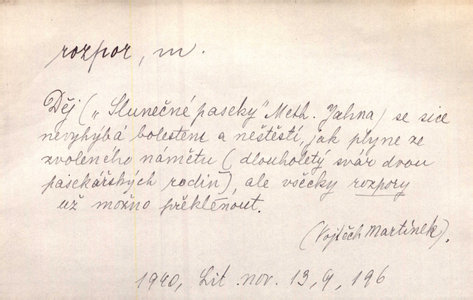 rozpor, m.
Děj („Slunečné paseky" Meth. Jahna) se sice
nevyhýbá bolestem a neštěstí, jak plyne ze
zvoleného námětu (dlouholetý svár dvou
pasekářských rodin), ale všecky rozpory
už možno překlenout.
(Vojtěch Martínek).
1940, Lit. nov. 13, 9, 196